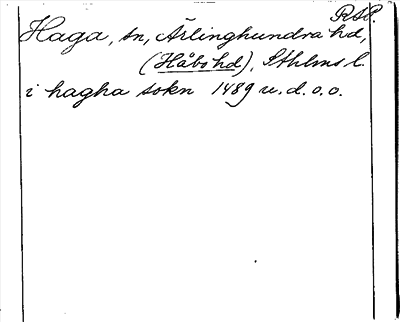 RSP.
Haga, sn, Ärlinghundra hd,
(Håbo hd), Sthlms l.
i hagha sokn 1489 u.d. o.o.